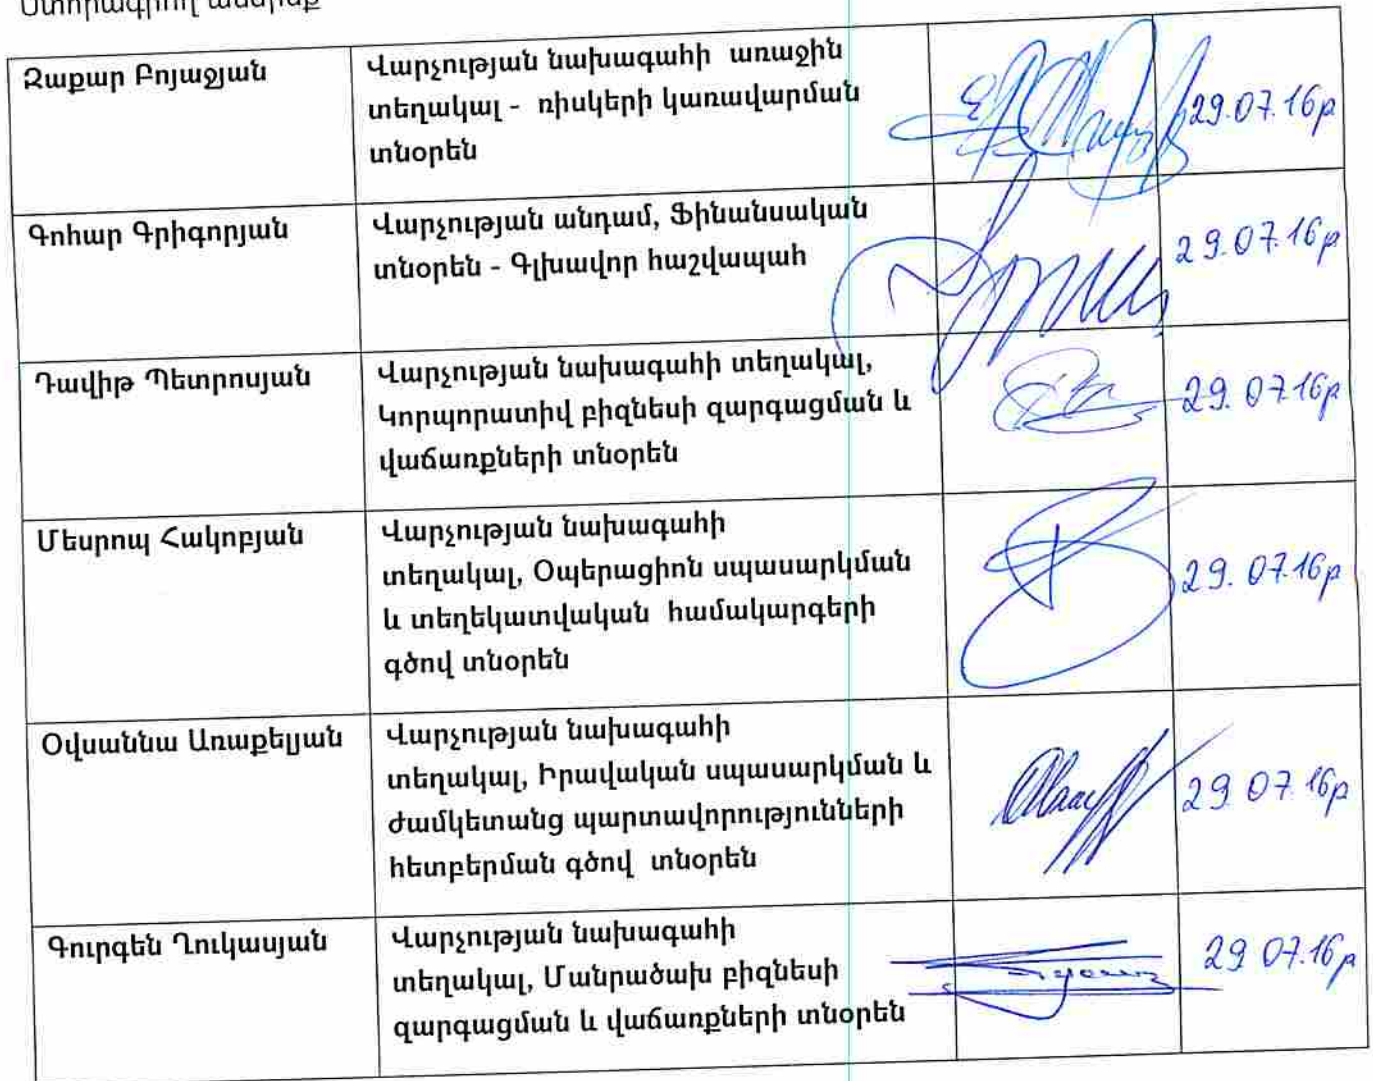 Ստորագրող անձինք
Զաքար Բոյաջյան
Վարչության նախագահի առաջին
տեղակալ - ռիսկերի կառավարման
տնօրեն
29.07.16թ
Գոհար Գրիգորյան
Վարչության անդամ, Ֆինանսական
տնօրեն - Գլխավոր հաշվապահ
29.07.16թ
Դավիթ Պետրոսյան
Վարչության նախագահի տեղակալ,
Կորպորատիվ բիզնեսի զարգացման և
վաճառքների տնօրեն
29.07.16թ
Մեսրոպ Հակոբյան
Վարչության նախագահի
տեղակալ, Օպերացիոն սպասարկման
և տեղեկատվական համակարգերի
գծով տնօրեն
29.07.16թ
Օվսաննա Առաքելյան
Վարչության նախագահի
տեղակալ, Իրավական սպասարկման և
ժամկետանց պարտավորությունների
հետբերման գծով տնօրեն
29 07.16թ
Գուրգեն Ղուկասյան
Վարչության նախագահի
տեղակալ, Մանրածախ բիզնեսի
զարգացման և վաճառքների տնօրեն
29 07.16թ